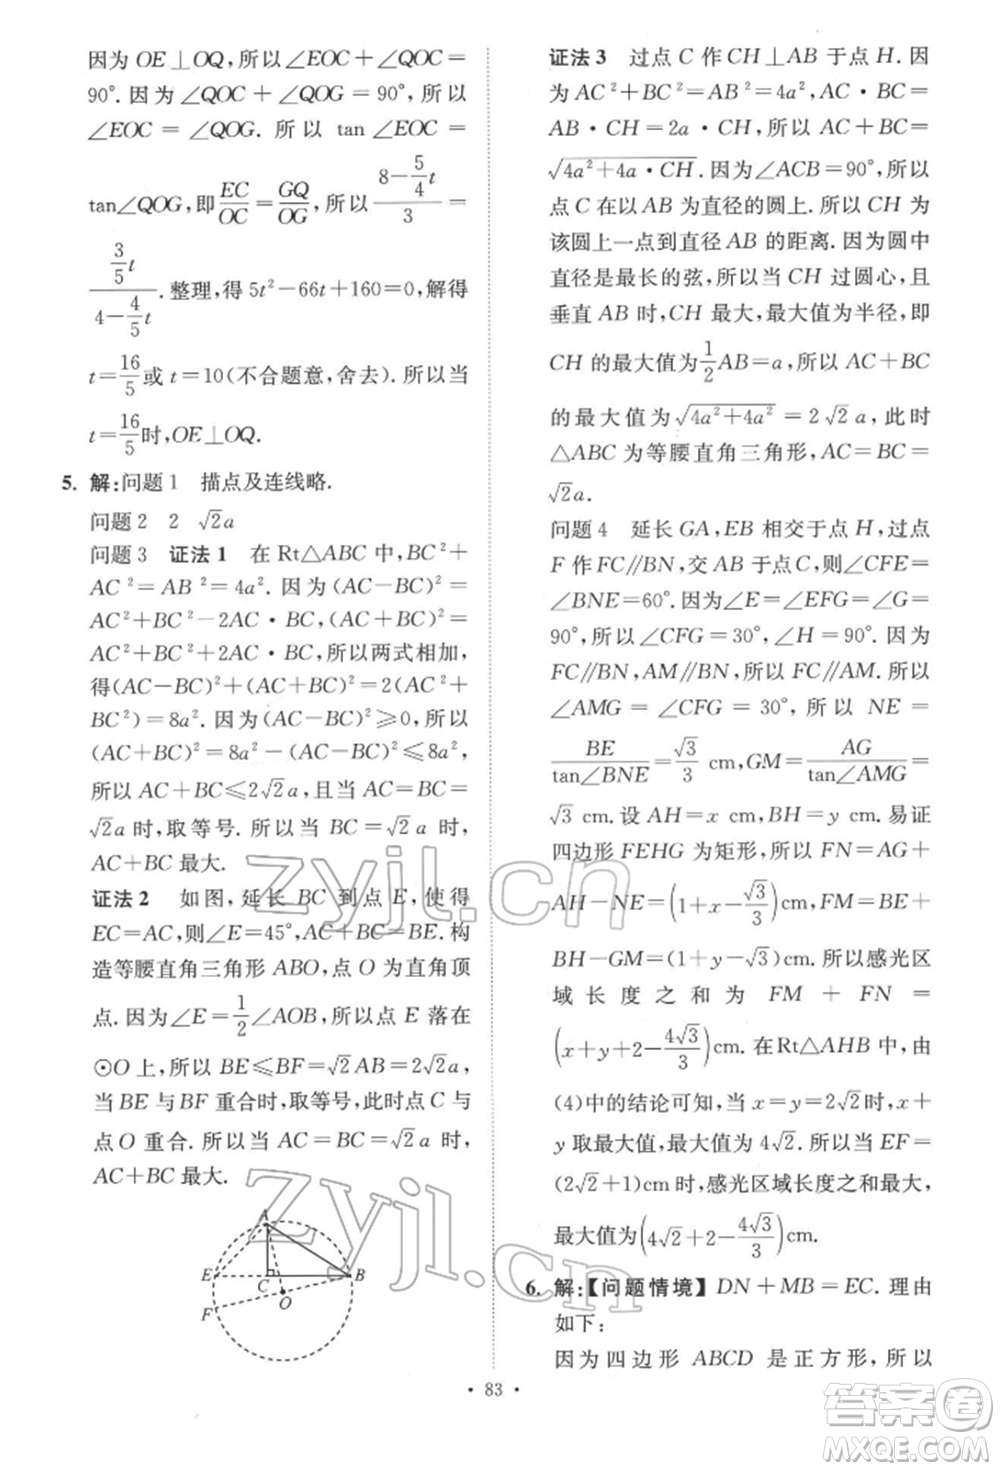 因为 OE⊥OQ,所以∠EOC+∠QOC=
90°. 因为∠QOC+∠QOG=90°,所以
∠EOC = ∠QOG. 所以 tan∠EOC =
tan∠QOG,即 EC/OC = GQ/OG,所以 (8-5/4 t)/3 =
(3/5 t)/(4-4/5 t).整理,得 5t²-66t+160=0,解得
t=16/5或 t=10(不合题意,舍去). 所以当
t=16/5时,OE⊥OQ.
5. 解:问题1 描点及连线略.
问题2 2 √2a
问题3 证法1 在Rt△ABC中,BC²+
AC²=AB²=4a². 因为(AC-BC)²=
AC²+BC²-2AC·BC,(AC+BC)²=
AC²+BC²+2AC·BC,所以两式相加,
得(AC-BC)²+(AC+BC)²=2(AC²+
BC²)=8a². 因为(AC-BC)²≥0,所以
(AC+BC)²=8a²-(AC-BC)²≤8a²,
所以 AC+BC≤2√2a,当 AC=BC=
√2a 时,取等号. 所以当 BC=√2a 时,
AC+BC最大.
证法2 如图,延长 BC 到点 E,使得
EC=AC,则∠E=45°,AC+BC=BE. 构
造等腰直角三角形 ABO,点 O 为直角顶
点. 因为∠E=1/2∠AOB,所以点 E 落在
⊙O上,所以 BE≤BF=√2AB=2√2a,
当BE与BF重合时,取等号,此时点C与
点O重合. 所以当 AC=BC=√2a 时,
AC+BC最大.
A
E
C
B
O
F
证法3 过点 C 作 CH⊥AB 于点 H. 因
为 AC²+BC²=AB²=4a²,AC·BC=
AB·CH=2a·CH,所以 AC+BC=
√(4a²+4a·CH). 因为∠ACB=90°,所以
点C在以AB为直径的圆上. 所以CH为
该圆上一点到直径 AB 的距离. 因为圆中
直径是最长的弦,所以当 CH 过圆心,且
垂直 AB 时,CH 最大,最大值为半径,即
CH的最大值为1/2AB=a,所以 AC+BC
的最大值为√(4a²+4a²)=2√2a,此时
△ABC 为等腰直角三角形,AC=BC=
√2a.
问题4 延长GA,EB相交于点 H,过点
F 作 FC∥BN,交 AB 于点C,则∠CFE=
∠BNE=60°. 因为∠E=∠EFG=∠G=
90°,所以∠CFG=30°,∠H=90°. 因为
FC∥BN,AM∥BN,所以 FC∥AM. 所以
∠AMG = ∠CFG = 30°,所以 NE =
BE/tan∠BNE = √3/3 cm,GM = AG/tan∠AMG =
√3 cm. 设 AH=x cm,BH=y cm. 易证
四边形 FEHG为矩形,所以 FN=AG+
AH-NE=(1+x-√3/3)cm,FM=BE+
BH-GM=(1+y-√3)cm. 所以感光区
域长度之和为 FM + FN =
(x+y+2-4√3/3)cm. 在Rt△AHB中,由
(4)中的结论可知,当 x=y=2√2时,x+
y 取最大值,最大值为4√2. 所以当 EF=
(2√2+1)cm时,感光区域长度之和最大,
最大值为(4√2+2-4√3/3)cm.
6. 解:【问题情境】DN+MB=EC. 理由
如下:
因为四边形 ABCD 是正方形,所以
• 83 •
zyjl.cn
Zyjl.cn
答案圈
MXQE.COM